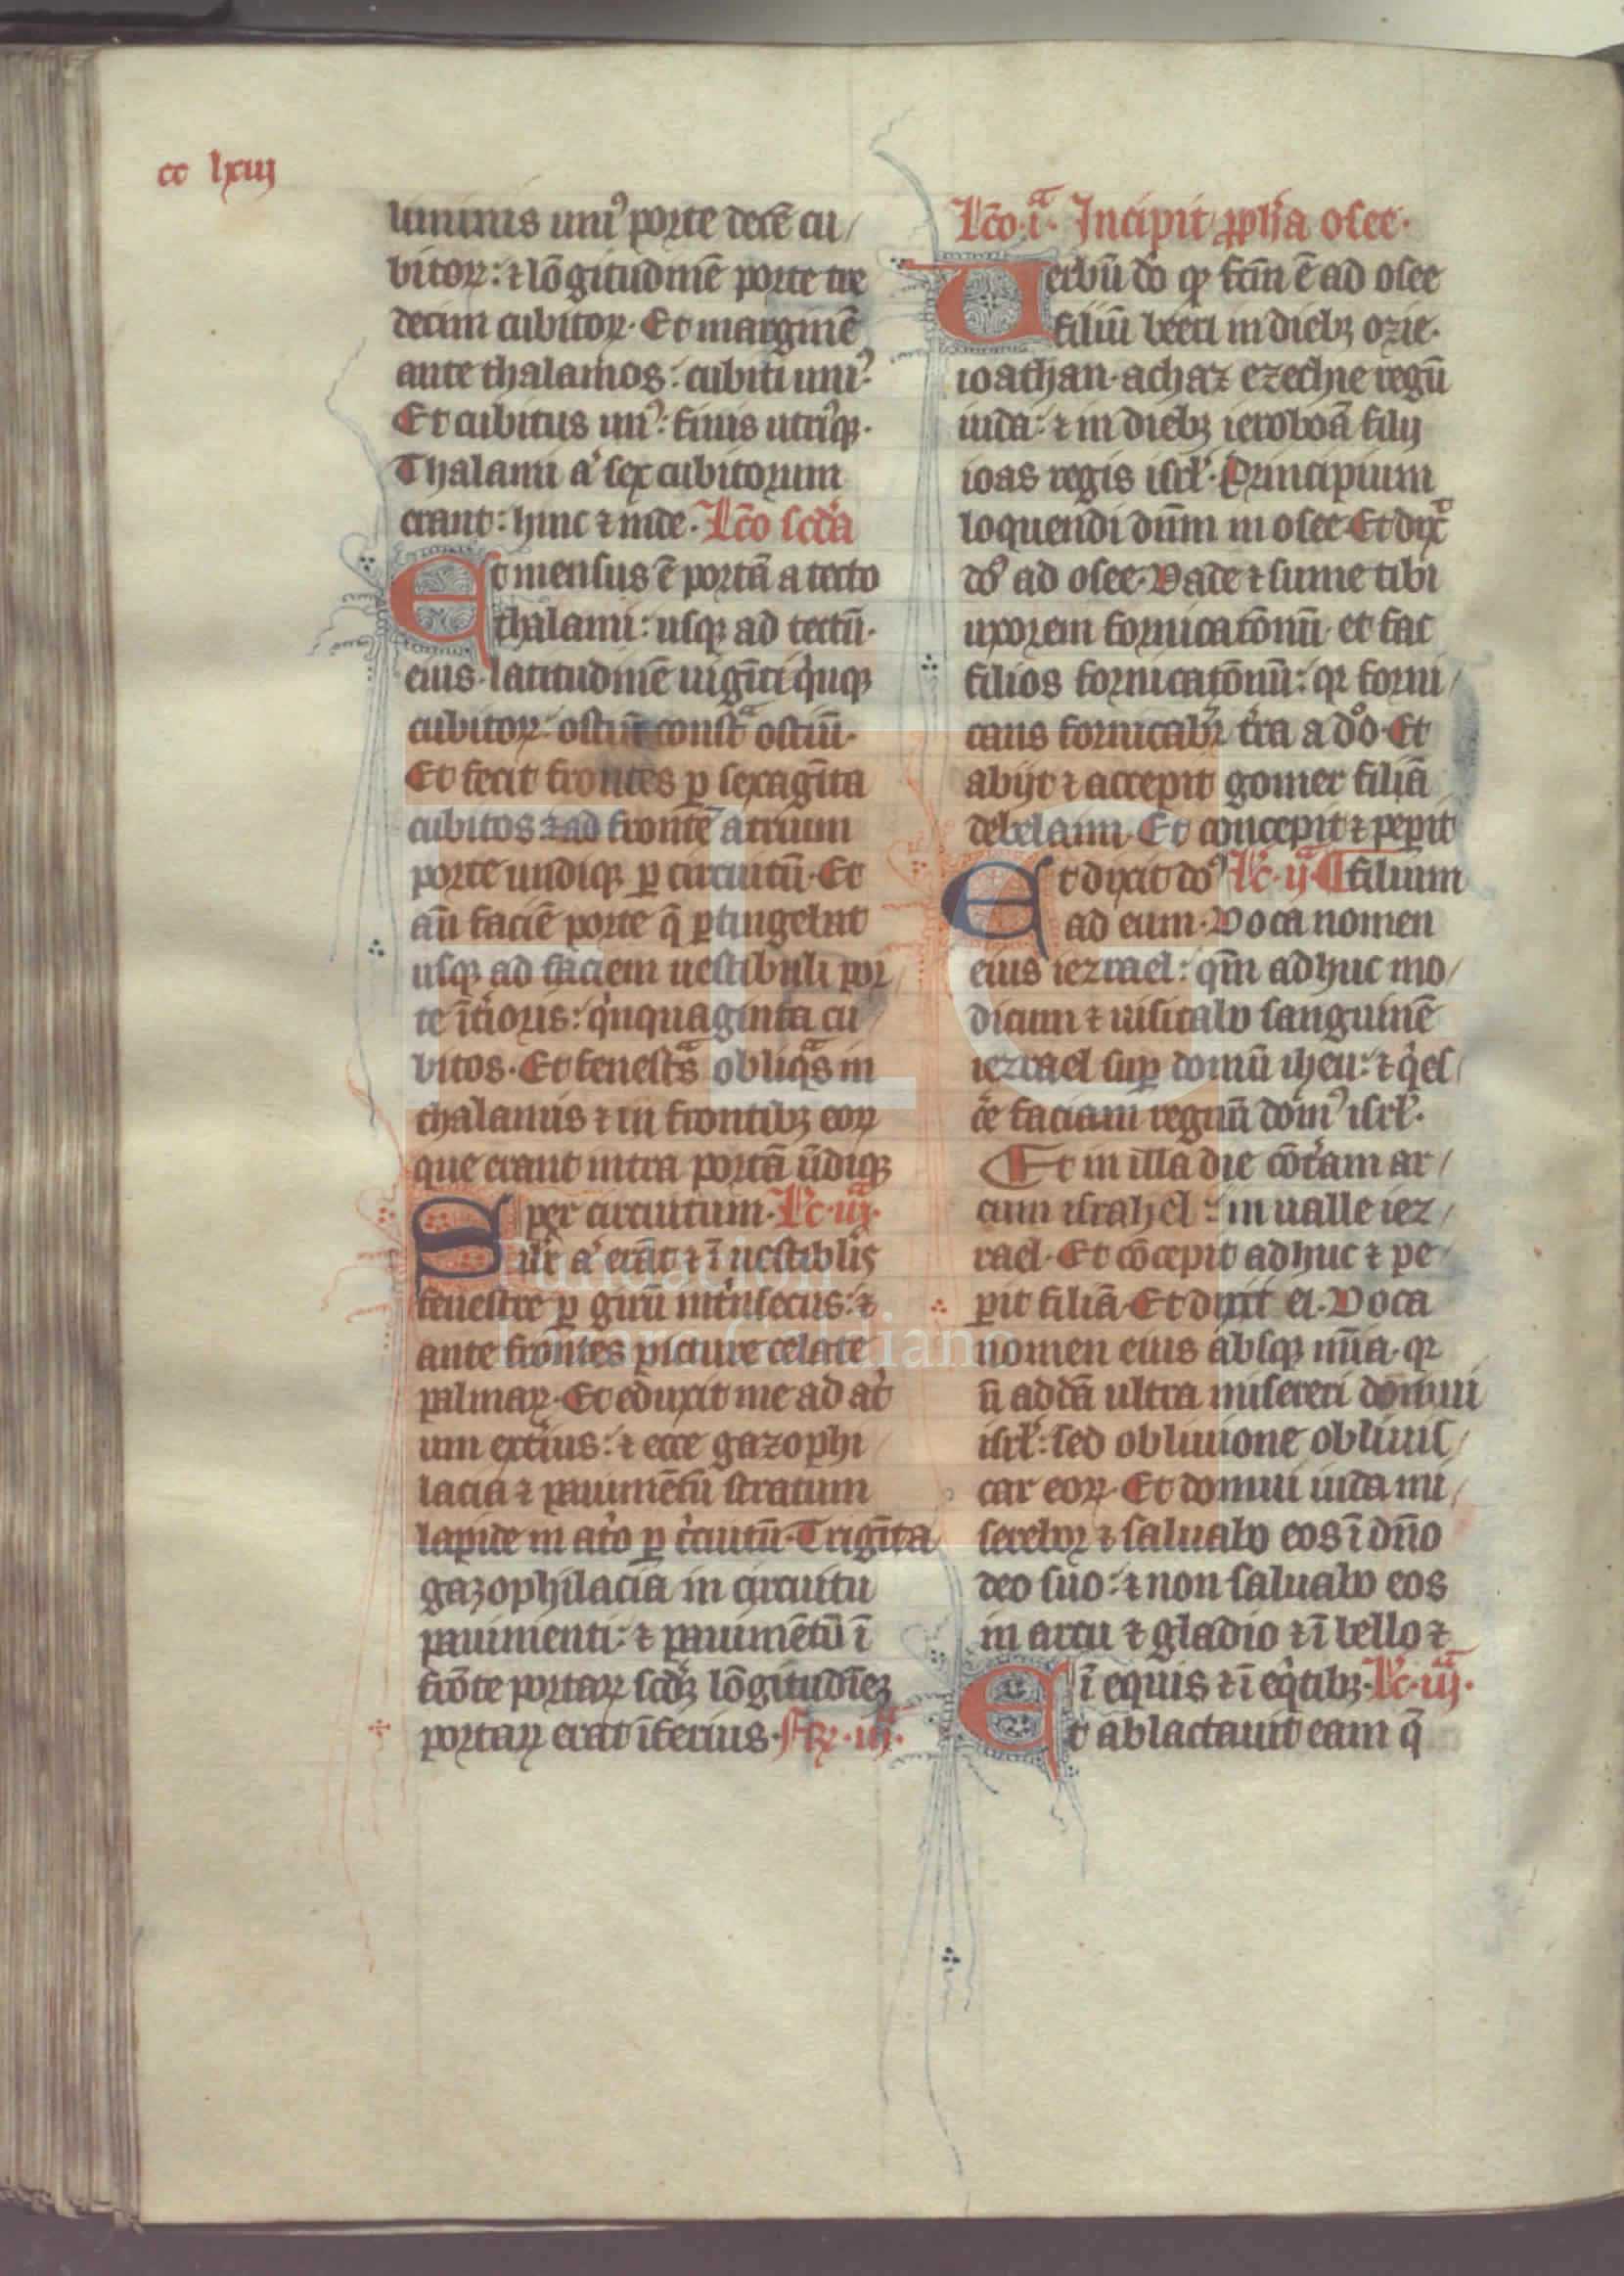 cc lxiij
liminis uniꝰ porte decē cu/
bitoꝝ: ⁊ lōgitudinē porte tre
decim cubitoꝝ. Et marginē
ante thalamos: cubiti uniꝰ.
Et cubitus unꝰ: finis utriꝰqꝫ.
Thalami aͧ sex cubitorum
erant: hinc ⁊ inde. Lc̄o scd̓a
Et mensus ē portā a tecto
thalami: usqꝫ ad tectū.
eius. latitudinē uigīti qͥnqꝫ
cubitoꝝ: ostiū contͣ ostiū.
Et fecit frontes ꝑ sexagīta
cubitos ⁊ ad frontē atrium
porte undiqꝫ ꝑ circuitū. Et
an̄ faciē porte q̄ ꝑtingebat
usqꝫ ad faciem uestibuli por/
te īt̓ioris: qͥnquaginta cu
bitos. Et fenestͣs obliqͣs in
thalamis ⁊ in frontibꝫ eoꝝ
que erant intra portā ūdiqꝫ
per circuitum. Lc̄. iijͣ.
Silr̄ aͧ erāt ⁊ ī uestiblͥis
fenestre ꝑ girū int̓nsecus: ⁊
ante frontes picture celate
palmaꝝ. Et eduxit me ad at̓
um ext̓ius: ⁊ ecce gazophi/
lacia ⁊ pauimētū stratum
lapide in atͥo ꝑ cͥcuitū. Trigīta
gazophilacia in circuitu
pauimenti: ⁊ pauimētū ī
frōte portaꝝ scd̓ꝫ lōgitudīeꝫ
portaꝝ erat īferius. Fꝝ. iijͣ.
Lc̄o. iͣ. Incipit ꝓph̄ia osee.
Uerbū dō qꝫ fcm̄ ē ad osee
filiū beeri in diebꝫ ozie.
ioathan. achaz ezechie regū
iuda: ⁊ in diebꝫ ieroboā filij
ioas regis isrl̓. Principium
loquendi dūm in osee. Et dixͦ
dōꝰ ad osee. Vade ⁊ sume tibi
uxorem fornicatōnū. et fac
filios fornicatōnū: qꝛ forni/
cans fornicabr̄ tr̄a a dōo. Et
abijt ⁊ accepit gomer filiā
debelaim. Et concepit ⁊ peꝑit
Et dixit dōꝰ Lc̄. ijͣ. ¶ filium
ad eum. Voca nomen
eius iezrael: qm̄ adhuc mo/
dicum ⁊ uisitabo sanguinē
iezrael suꝑ domū iheu: ⁊ qͥes/
c̓e faciam regnū domꝰ isrl̓.
Et in illa die cōt̓am ar/
cum israhel: in ualle iez/
rael. Et cōcepit adhuc ⁊ pe/
ꝑit filiā. Et dixit ei. Voca
nomen eius absqꝫ mīa. qꝛ
ñ addā ultra misereri domui
isrl̓: sed obliuione obliuis/
car eoꝝ. Et domui iuda mi/
serebor ⁊ saluabo eos ī dn̄o
deo suo: ⁊ non saluabo eos
in arcu ⁊ gladio ⁊ ī bello ⁊
ī equis ⁊ ī eqͥtibꝫ. Lc̄. iijͣ.
Et ablactauit eam q̄
Fundación
Lázaro Galdiano